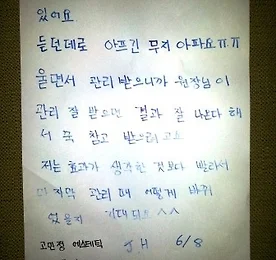 있어요
듣던데로 아프긴 무지 아파요ㅠㅠ
울면서 관리 받으니까 원장님이
관리 잘 받으면 결과 잘 나온다 해
서 꾹 참고 받으려고요
저는 효과가 생각한 것보다 빨라서
마지막 관리 때 어떻게 바뀌
었을지 기대되요 ^^
고민정 에스테틱 JH 6/8